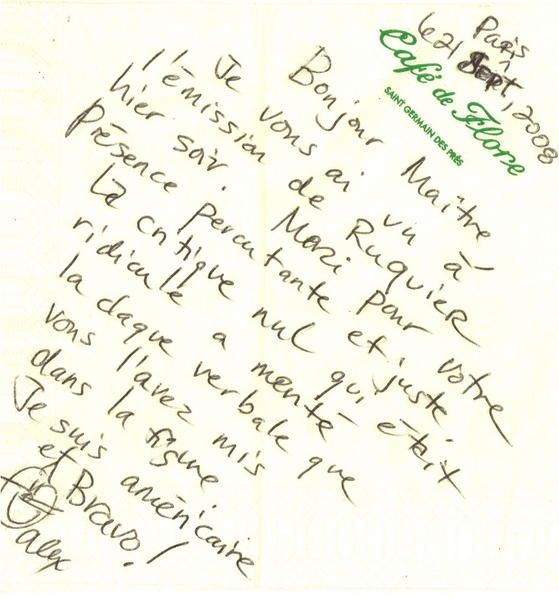 Paris
le 21 Sept, 2008
Café de Flore
SAINT GERMAIN DES PRÉS
Bonjour Maître
Je vous ai vu à
l'émission de Ruquier
hier soir. Merci pour votre
présence percutante et juste.
La critique nul qui était
ridicule a mérité
la claque verbale que
vous l'avez mis
dans la figure
Je suis américaine
et Bravo!
Alex